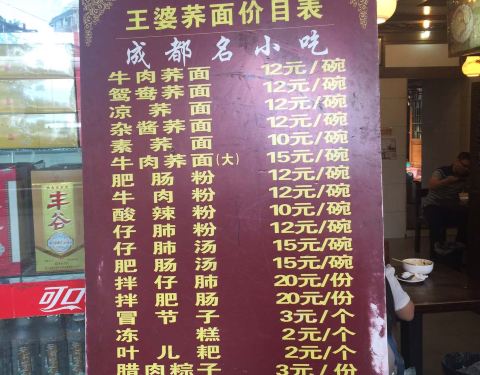 王婆荞面价目表
成都名小吃
牛肉荞面 12元/碗
鸳鸯荞面 12元/碗
凉荞面 12元/碗
杂酱荞面 12元/碗
素荞面 10元/碗
牛肉荞面(大) 15元/碗
肥肠粉 12元/碗
牛肉粉 12元/碗
酸辣粉 10元/碗
仔肺粉 12元/碗
仔肺汤 15元/碗
肥肠汤 15元/碗
拌仔肺 20元/份
拌肥肠 20元/份
冒节子 3元/个
冻糕 2元/个
叶儿粑 2元/个
腊肉粽子 3元/份
丰谷
可口